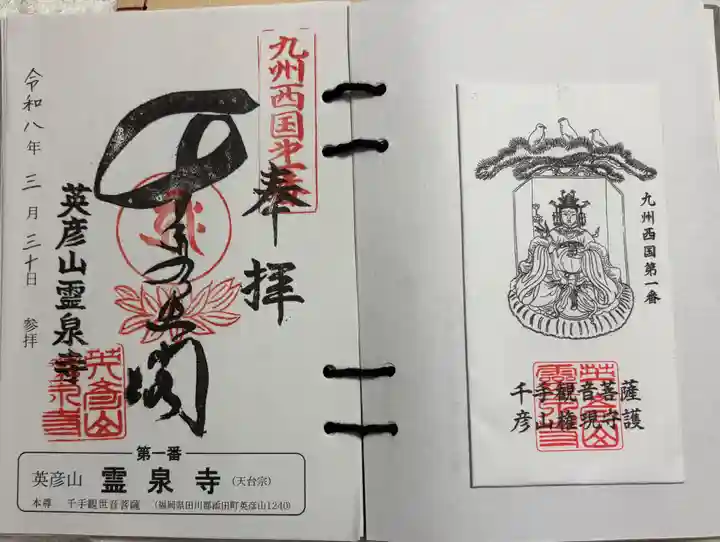 九州西国第一番
奉拝
千手大悲閣
英彦山霊泉寺
英彦山
霊泉寺
令和八年三月三十日 参拝
第一番
英彦山 霊泉寺 (天台宗)
本尊 千手観世音菩薩 (福岡県田川郡添田町英彦山1240)
九州西国第一番
千手観音菩薩
彦山権現守護
英彦山
霊泉寺